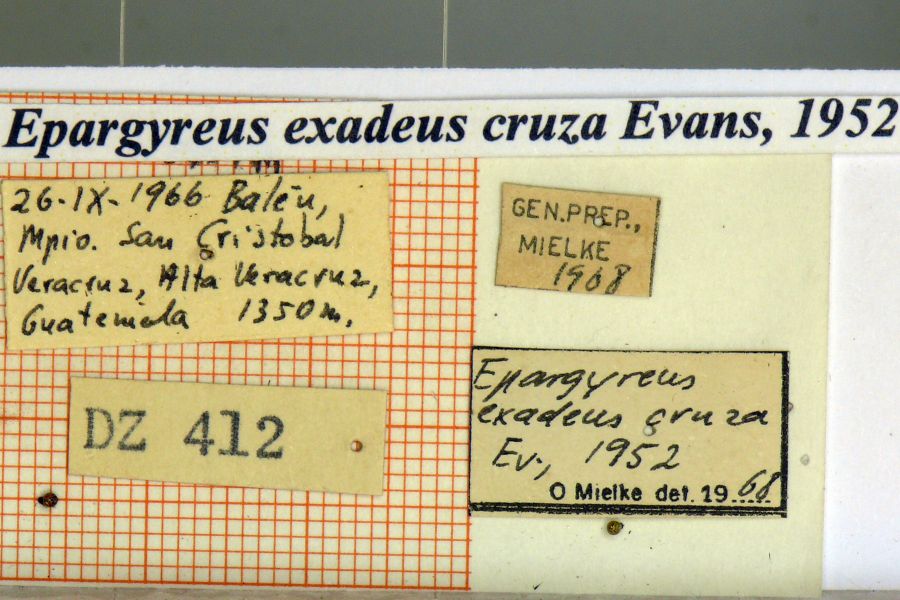 Epargyreus exadeus cruza Evans, 1952
26-IX-1966 Balén,
Mpio. San Cristobal
Veracruz, Alta Veracruz,
Guatemala 1350m.
GEN.PREP.,
MIELKE
1968
DZ 412
Epargyreus
exadeus cruza
Ev., 1952
O Mielke det. 1968